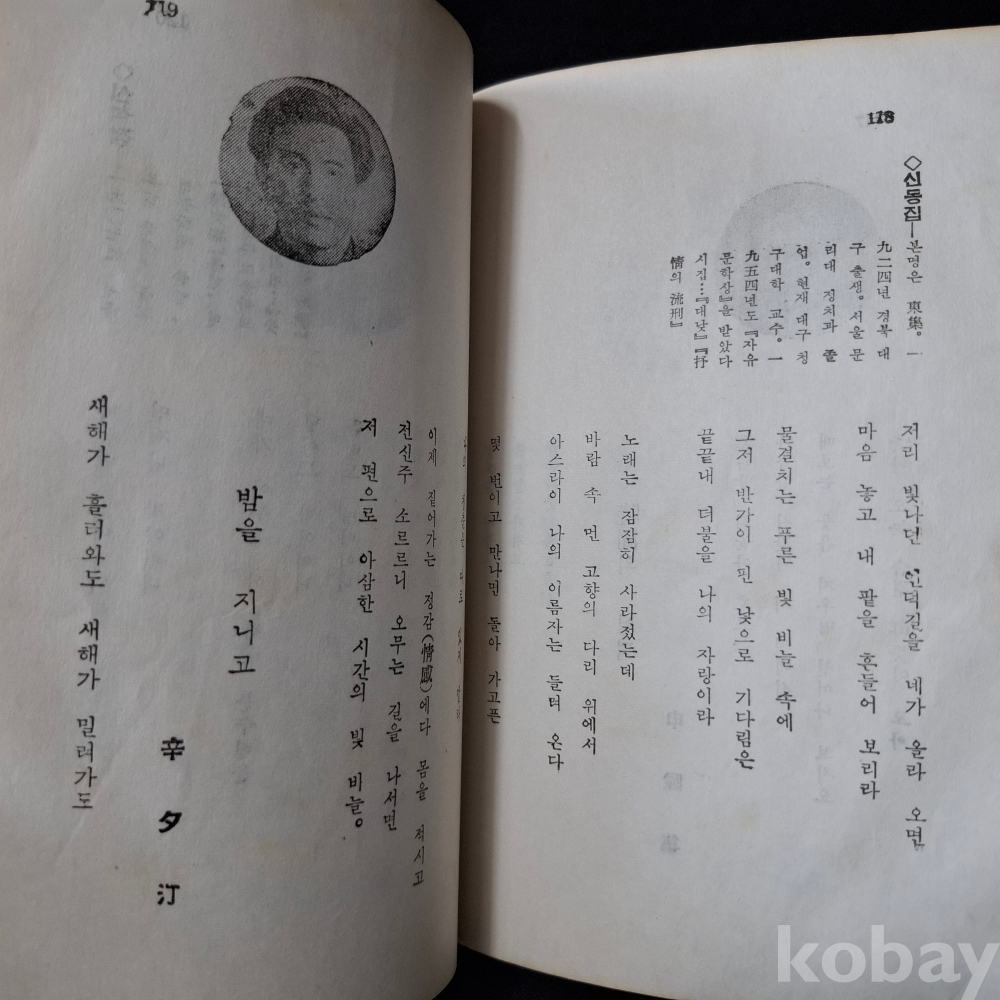 118
◇신동집―본명은 東集。一
九二四년 경북 대
구 출생。서울 문
리대 정치과 졸
업。현재 대구 청
구대학 교수。一
九五四년도 『자유
문학상』을 받았다
시집…『대낮』『抒
情의 流刑』
저리 빛나던 언덕길을 네가 올라 오면
마음 놓고 내 팔을 흔들어 보리라
물결치는 푸른 빛 비늘 속에
그저 반가이 핀 낯으로 기다림은
끝끝내 더불을 나의 자랑이라
노래는 잠잠히 사라졌는데
바람 속 먼 고향의 다리 위에서
아스라이 나의 이름자는 들며 온다
몇 번이고 만나면 돌아 가고픈
이제 짙어가는 정감(情感)에다 몸을 적시고
전신주 소르르니 오무는 길을 나서면
저 편으로 아삼한 시간의 빛 비늘。
119
밤을 지니고
辛夕汀
새해가 흘러와도 새해가 밀려가도
kobay